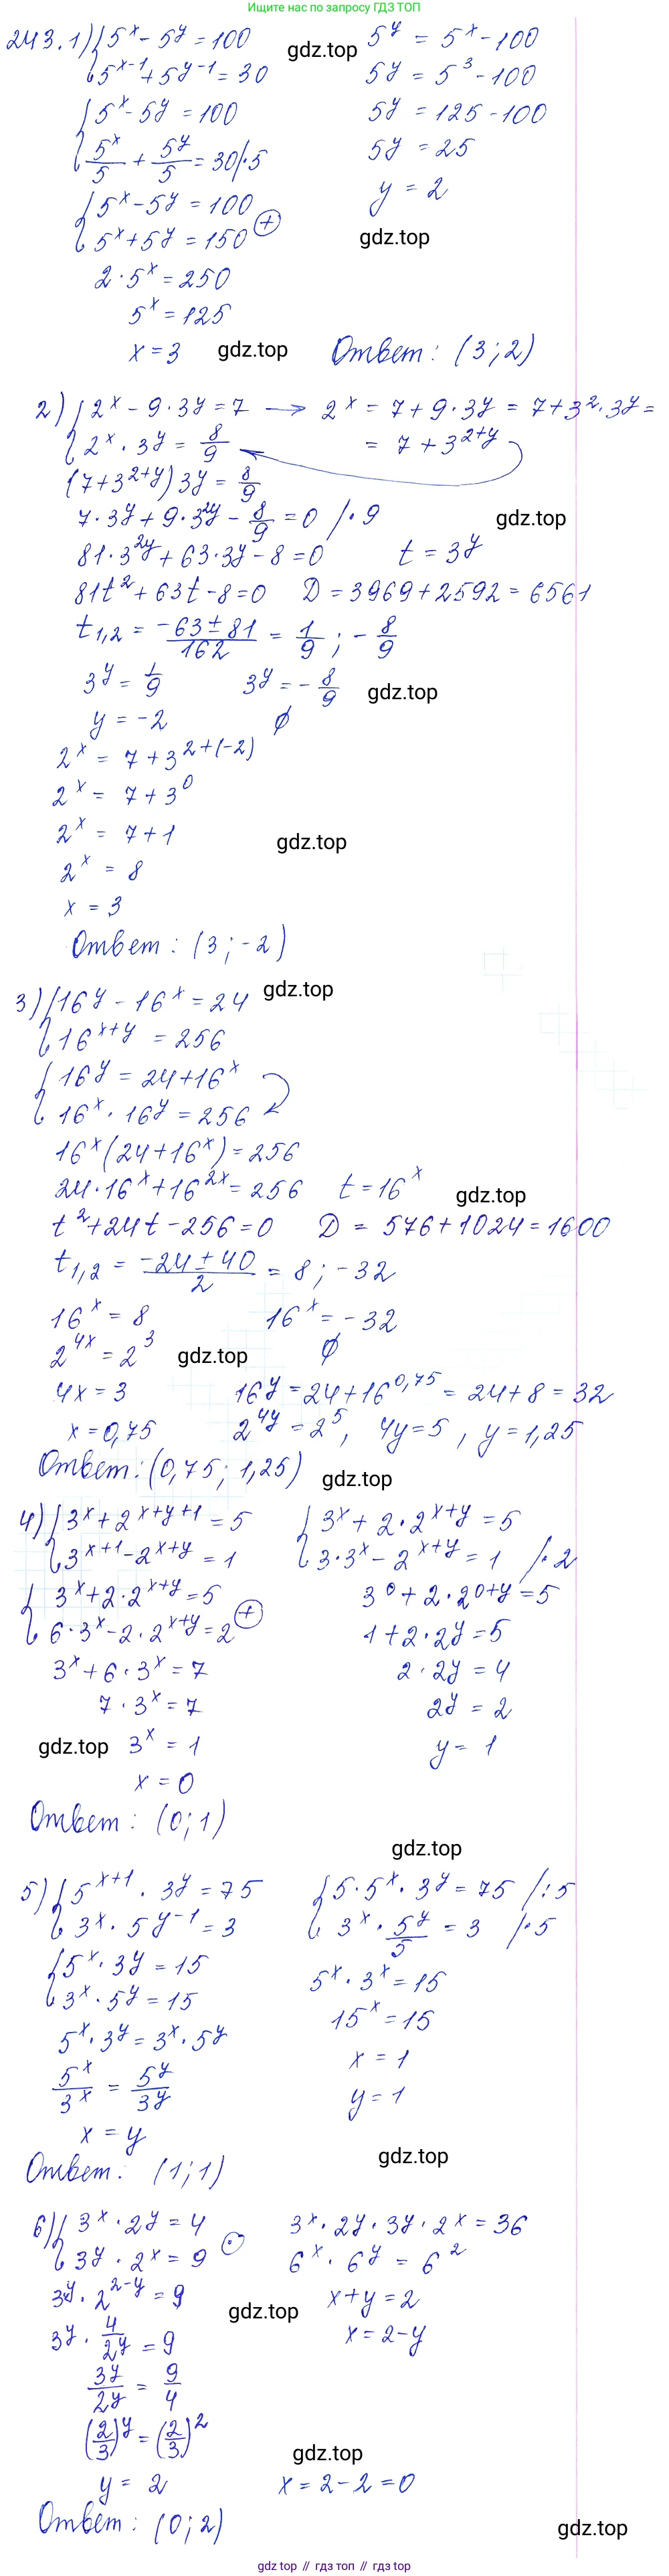 наш поиск по запросу ГДЗ ТОП
243. 1) { 5^x - 5^y = 100
5^(x-1) + 5^(y-1) = 30
gdz.top
5^y = 5^x - 100
5^y = 5^3 - 100
{ 5^x - 5^y = 100
5^y = 125 - 100
5^x/5 + 5^y/5 = 30 |·5
5^y = 25
{ 5^x - 5^y = 100
5^x + 5^y = 150 (+)
y = 2
gdz.top
2·5^x = 250
5^x = 125
x = 3
gdz.top
Ответ: (3; 2)
2) { 2^x - 9·3^y = 7 → 2^x = 7 + 9·3^y = 7 + 3^2·3^y =
2^x · 3^y = 8/9
= 7 + 3^(2+y)
(7 + 3^(2+y)) 3^y = 8/9
7·3^y + 9·3^(2y) - 8/9 = 0 /·9
gdz.top
81·3^(2y) + 63·3^y - 8 = 0 t = 3^y
81t^2 + 63t - 8 = 0 D = 3969 + 2592 = 6561
t1,2 = (-63 ± 81)/162 = 1/9 ; -8/9
3^y = 1/9 3^y = -8/9
gdz.top
y = -2 ∅
2^x = 7 + 3^(2+(-2))
2^x = 7 + 3^0
2^x = 7 + 1
gdz.top
2^x = 8
x = 3
Ответ: (3; -2)
3) { 16^y - 16^x = 24
gdz.top
16^(x+y) = 256
{ 16^y = 24 + 16^x
16^x · 16^y = 256
16^x (24 + 16^x) = 256
24·16^x + 16^(2x) = 256 t = 16^x
gdz.top
t^2 + 24t - 256 = 0 D = 576 + 1024 = 1600
t1,2 = (-24 ± 40)/2 = 8 ; -32
16^x = 8 16^x = -32
2^(4x) = 2^3 ∅
gdz.top
4x = 3 16^y = 24 + 16^0,75 = 24 + 8 = 32
x = 0,75 2^(4y) = 2^5, 4y = 5, y = 1,25
Ответ: (0,75; 1,25)
gdz.top
4) { 3^x + 2^(x+y+1) = 5 { 3^x + 2·2^(x+y) = 5
3^(x+1) - 2^(x+y) = 1 3·3^x - 2^(x+y) = 1 /·2
{ 3^x + 2·2^(x+y) = 5 3^0 + 2·2^(0+y) = 5
6·3^x - 2·2^(x+y) = 2 (+) 1 + 2·2^y = 5
3^x + 6·3^x = 7 2·2^y = 4
7·3^x = 7 2^y = 2
gdz.top
3^x = 1 y = 1
x = 0
Ответ: (0; 1)
gdz.top
5) { 5^(x+1) · 3^y = 75 { 5·5^x · 3^y = 75 /:5
3^x · 5^(y-1) = 3 3^x · 5^y/5 = 3 /·5
{ 5^x · 3^y = 15 5^x · 3^x = 15
3^x · 5^y = 15 15^x = 15
5^x · 3^y = 3^x · 5^y x = 1
5^x/3^x = 5^y/3^y y = 1
x = y
Ответ: (1; 1)
gdz.top
6) { 3^x · 2^y = 4 3^x · 2^y · 3^y · 2^x = 36
3^y · 2^x = 9 (·) 6^x · 6^y = 6^2
3^y · 2^(2-y) = 9 x + y = 2
gdz.top
3^y · 4/2^y = 9 x = 2 - y
3^y/2^y = 9/4
(2/3)^y = (2/3)^2
gdz.top
y = 2 x = 2 - 2 = 0
Ответ: (0; 2)
gdz.top
gdz топ // гдз топ // gdz.top